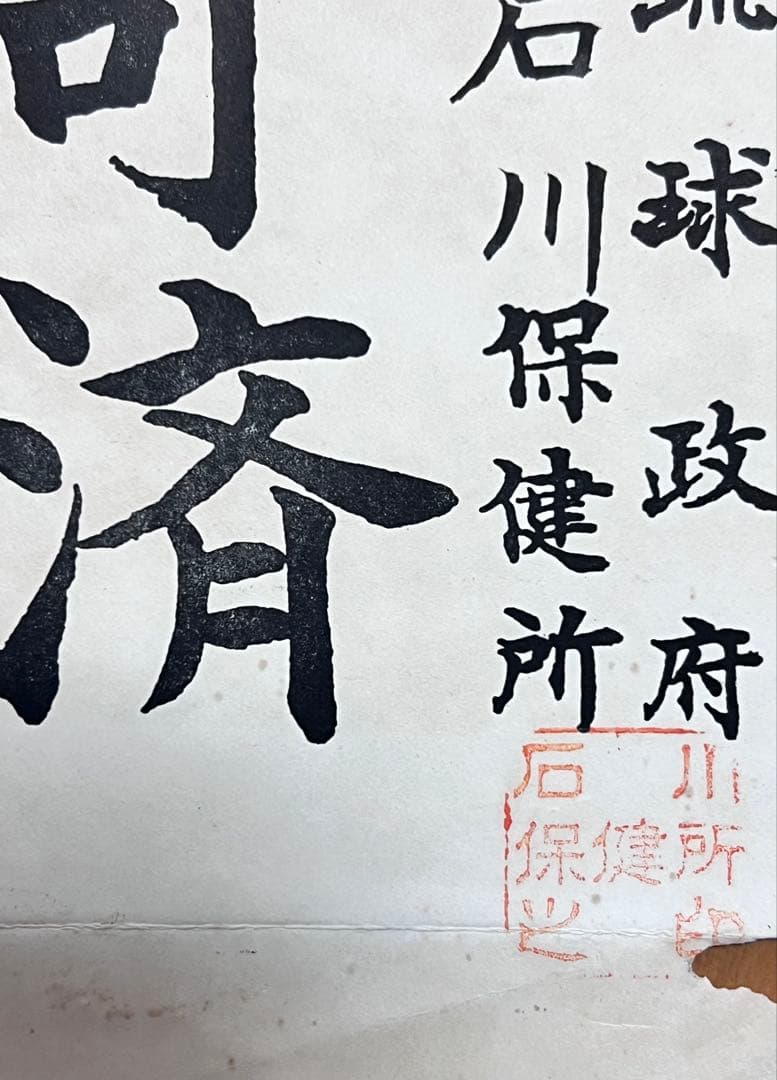 琉球政府
石川保健所
可済
石川
保健所
之印